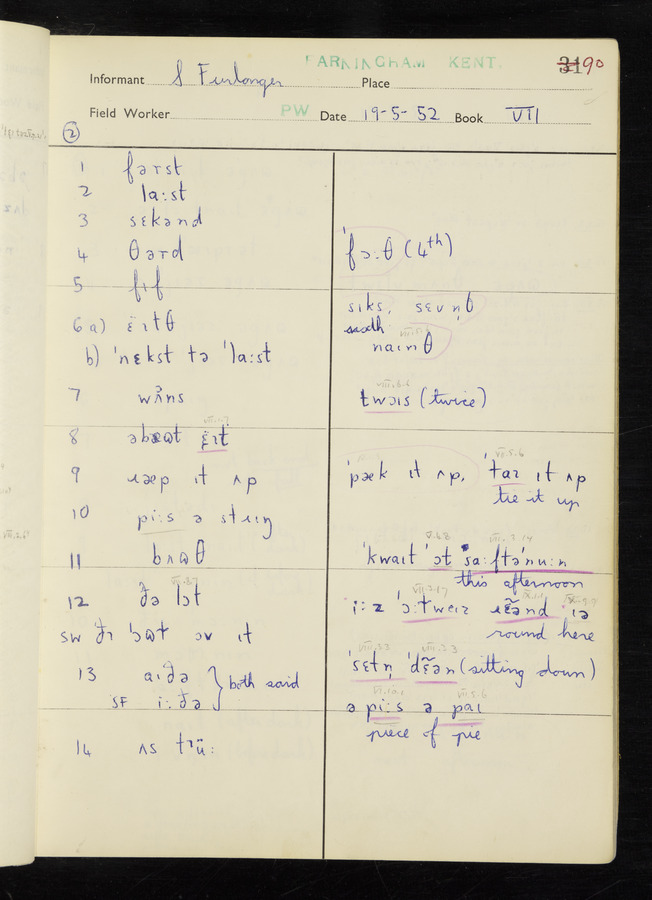 FARNINGHAM KENT.
31 90
Informant S Furlonger Place
Field Worker PW Date 19-5-52 Book VII
2
1 fərst
2 la:st
3 sɛkənd
4 θərd
'fɔ:θ (4th)
5 fɪf
sɪks, sɛvn̩θ
6 a) ɛ̈ɪtθ
sixth
naɪnθ
b) 'nɛkst tə 'la:st
7 wʌns
twɔɪs (twice)
8 əbɛɷt ɛ̈ɪt
9 ɹæp ɪt ʌp
'pæk ɪt ʌp, 'taɪ ɪt ʌp
tie it up
10 pi:s ə stɹɪŋ
11 bɹɷθ
'kwaɪt 'ɔt 'sa:ftə'nu:n
this afternoon
12 ðə lɔt
i:z 'ɔ:tweɪz ɹɛ̃ənd ɪə
round here
SW ðɪ 'ɔɷt ɔv ɪt
13 aɪðə
SF i:ðə
both said
'sɛtn̩ 'dɛ̃ən (sitting down)
ə pi:s ə paɪ
piece of pie
14 ʌs tɹü: